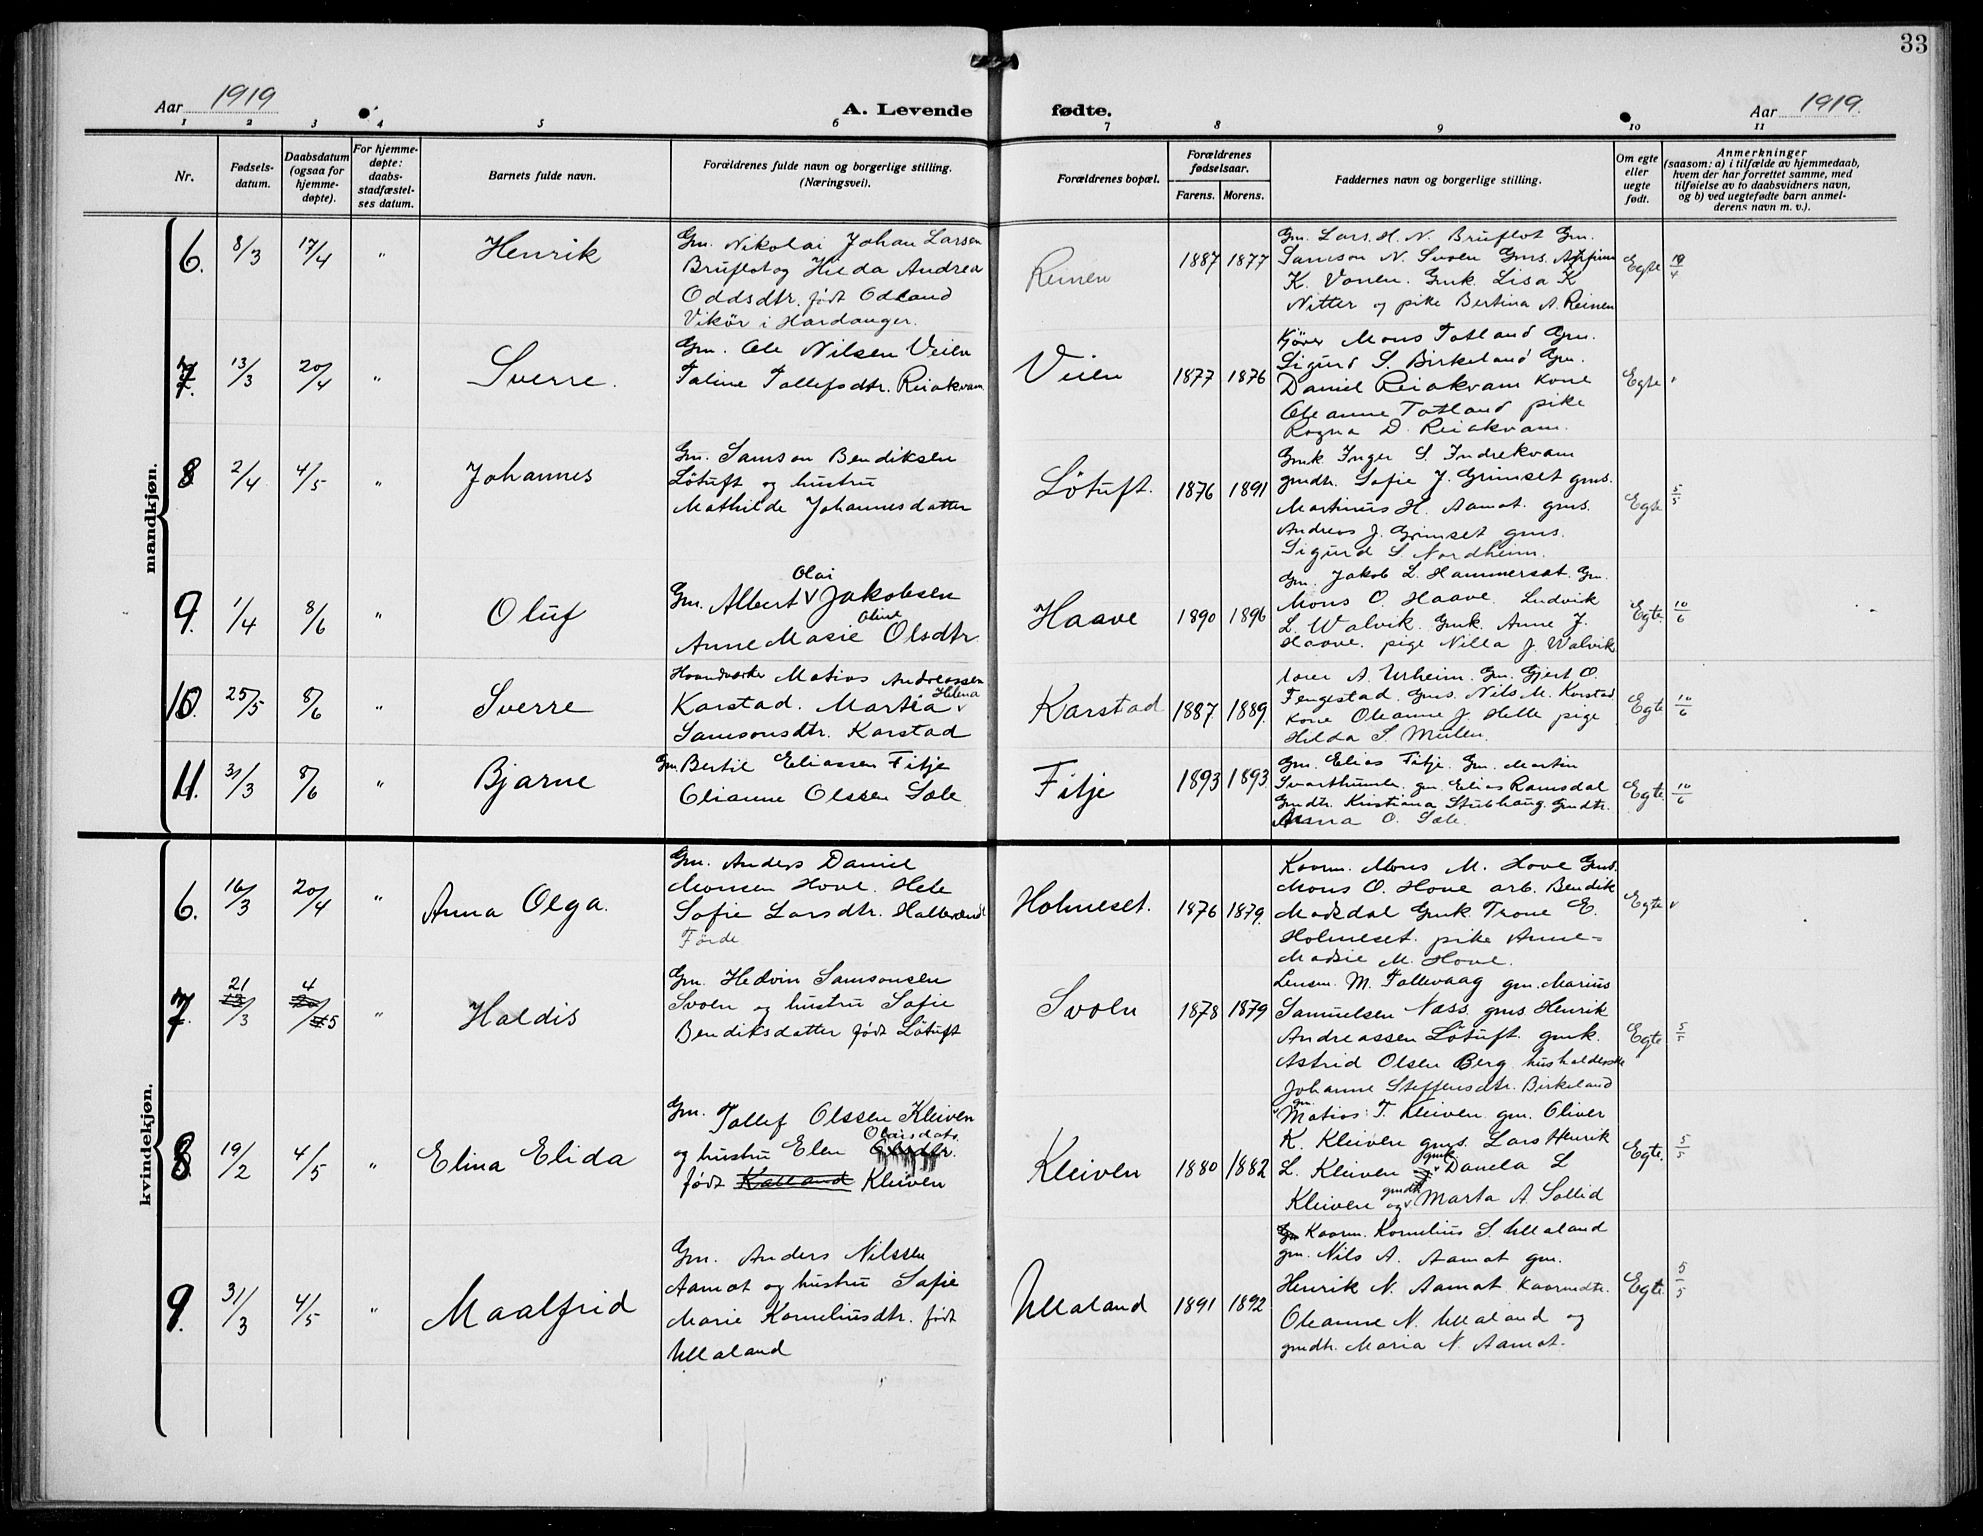 33
Aar 1919
A. Levende fødte.
Aar 1919.
1 2 3 4 5 6 7 8 9 10 11
Nr.
Fødsels-
datum.
Daabsdatum
(ogsaa for
hjemme-
døpte).
For hjemme-
døpte:
daabs-
stadfæstel-
ses datum.
Barnets fulde navn.
Forældrenes fulde navn og borgerlige stilling.
(Næringsvei).
Forældrenes bopæl.
Forældrenes
fødselsaar.
Farens. Morens.
Faddernes navn og borgerlige stilling.
Om egte
eller
uegte
født.
Anmerkninger
(saasom: a) i tilfælde av hjemmedaab,
hvem der har forrettet samme, med
tilføielse av to daabsvidners navn,
og b) ved uegtefødte barn anmel-
derens navn m. v.).
mandkjøn.
6. 8/3 17/4 " Henrik
Gm. Nikolai Johan Larsen
Bruflot og Hilda Andrea
Oddsdtr. født Odland
Vikör i Hardanger.
Reinen 1887 1877
Gm. Lars. H. N. Bruflot Gm.
Samson N. Svoen Gms.
K. Vonen. Gmk. Lisa K
Nitter og pike Bertina A. Reinen
Egte 19/4
7. 13/3 20/4 " Sverre.
Gm. Ole Nilsen Veien
Taline Tollefsdtr. Reiakvam
Veien 1877 1876
Kjører Mons Totland Gm.
Sigurd S. Birkeland Gm.
Daniel Reiakvam Kone
Oleanne Totland pike
Ragna D. Reiakvam.
Egte "
8 2/4 4/5 " Johannes
Gm. Samson Bendiksen
Løtuft og hustru
Mathilde Johannesdatter
Løtuft. 1876 1891
Gmk. Inger S. Indrekvam
gmdtr. Sofie J. Grimset gms.
Martinus H. Aamot. gms.
Andreas J. Grimset gms.
Sigurd S. Nordheim.
Egte 5/5
9. 1/4 8/6 " Oluf
Olai
Gm. Albert v Jakobsen
Oline
Anne Marie Olsdtr.
Haave 1890 1896
Gm. Jakob L. Hammerset. Gm.
Mons O. Haave. Ludvik
L. Walvik. Gmk. Anne J.
Haave. pige Nilla J. Walvik
Egte. 10/6
10. 25/5 8/6 " Sverre
Haandværker Matias Andreassen
Helena
Karstad. Martea v
Samsonsdtr. Karstad
Karstad 1887. 1889.
lærer A. Urheim. Gm. Gjert O.
Tengestad. Gms. Nils M. Karstad
Kone Oleanne J. Helle pige
Hilda S. Mülen.
Egte 10/6
11. 31/3 8/6 " Bjarne
Gm. Bertil Eliassen Fitje
Olianne Olssen Sæle
Fitje 1893 1893
Gm. Elias Fitje. Gm. Martin
Svarthumle. gm. Elias Ramsdal
Gmdtr. Kristiana Stubhaug. Gmdtr.
Anna O. Sæle.
Egte. 10/6
kvindekjøn.
6. 16/3 20/4 " Anna Olga.
Gm. Anders Daniel
Monsen Hove. Hele
Sofie Larsdtr.
Førde
Holmeset. 1876 1879.
Kaarm. Mons M. Hove Gms.
Mons O. Hove arb. Bendik
Madsdal Gmk. Trone E.
Holmeset. pike Anne=
Marie M. Hove.
Egte "
7. 21/3 4/5 " Haldis
Gm. Hedvin Samsonsen
Svoen og hustru Sofie
Bendiksdatter født Løtuft
Svoen 1878 1879
Lensm. M. Tollevaag gm. Marius
Samuelsen Næss. gms. Henrik
Andreassen Løtuft. gmk.
Astrid Olsen Berg husholderske
Johanne Steffensdtr. Birkeland
Egte 5/5
8 19/2 4/5 " Elina Elida
Gm. Tollef Olssen Kleiven
Olaisdatr.
og hustru Elen
født Kalland Kleiven
Kleiven 1880 1882
gm.
Matias T. Kleiven. gm. Oliver
K. Kleiven gms. Lars Henrik
gmk.
L. Kleiven v Daniela L
gmdtr.
Kleiven og v Marta A. Sollid
Egte. 5/5
9. 31/3 4/5 " Maalfrid
Gm. Anders Nilssen
Aamot og hustru Sofie
Marie Korneliusdtr. født
Ullaland
Ullaland 1891 1892
Gm Kaarm. Kornelius S. Ullaland
gm. Nils A. Aamot gm.
Henrik N. Aamot. Kaarmdtr.
Oleanne N. Ullaland og
gmdtr. Maria N. Aamot.
Egte. 5/5